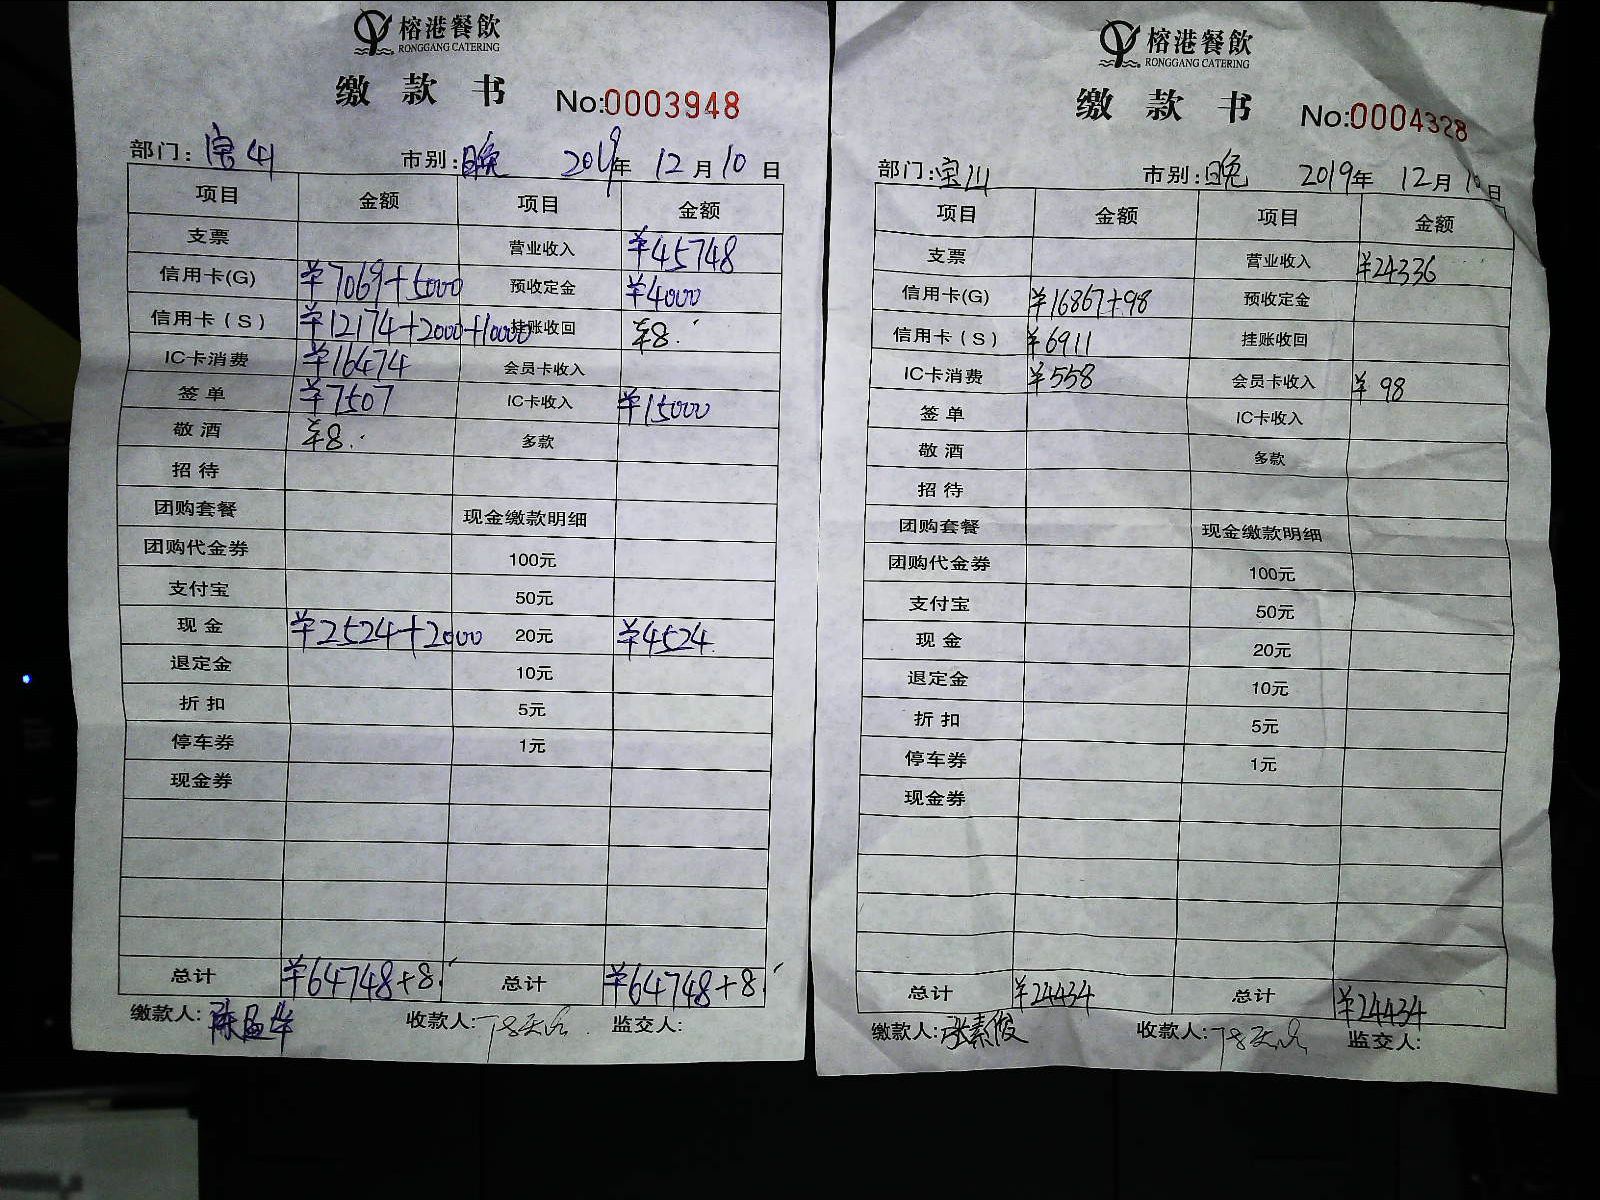 榕港餐飲
RONGGANG CATERING
缴款书 No:0003948
部门: 市别:晚 2019年 12月10日
项目 金额 项目 金额
支票 营业收入 ¥45748
信用卡(G) ¥7069+5000 预收定金 ¥4000
信用卡(S) ¥12174+2000+10000 挂账收回 ¥8.
IC卡消费 ¥16474 会员卡收入
签单 ¥7507 IC卡收入 ¥15000
敬酒 ¥8. 多款
招待
团购套餐 现金缴款明细
团购代金券 100元
支付宝 50元
现金 ¥2524+2000 20元 ¥4524
退定金 10元
折扣 5元
停车券 1元
现金券
总计 ¥64748+8. 总计 ¥64748+8.
缴款人: 收款人: 监交人:
榕港餐飲
RONGGANG CATERING
缴款书 No:0004328
部门:宝川 市别:晚 2019年 12月10日
项目 金额 项目 金额
支票 营业收入 ¥24336
信用卡(G) ¥16867+98 预收定金
信用卡(S) ¥6911 挂账收回
IC卡消费 ¥558 会员卡收入 ¥98
签单 IC卡收入
敬酒 多款
招待
团购套餐 现金缴款明细
团购代金券 100元
支付宝 50元
现金 20元
退定金 10元
折扣 5元
停车券 1元
现金券
总计 ¥24434 总计 ¥24434
缴款人:张素俊 收款人: 监交人: